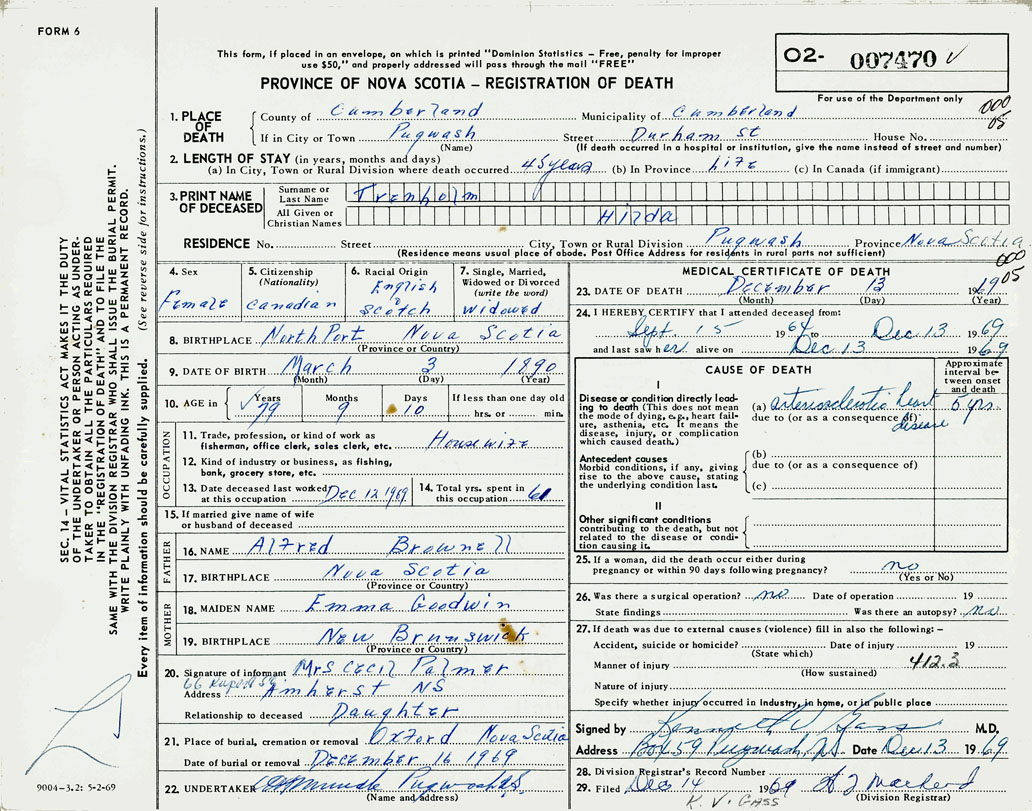 FORM 6
This form, if placed in an envelope, on which is printed "Dominion Statistics – Free, penalty for improper
use $50," and properly addressed will pass through the mail "FREE"
PROVINCE OF NOVA SCOTIA – REGISTRATION OF DEATH
O2- 007470 √
For use of the Department only
000
05
1. PLACE OF DEATH
County of Cumberland Municipality of Cumberland
If in City or Town Pugwash Street Durham St House No.
(Name) (If death occurred in a hospital or institution, give the name instead of street and number)
2. LENGTH OF STAY (in years, months and days)
(a) In City, Town or Rural Division where death occurred 45 years (b) In Province life (c) In Canada (if immigrant)
3. PRINT NAME OF DECEASED
Surname or Last Name Trenholm
All Given or Christian Names Hilda
RESIDENCE No. Street City, Town or Rural Division Pugwash Province Nova Scotia
(Residence means usual place of abode. Post Office Address for residents in rural parts not sufficient)
000
05
4. Sex Female
5. Citizenship (Nationality) Canadian
6. Racial Origin English & Scotch
7. Single, Married, Widowed or Divorced (write the word) Widowed
8. BIRTHPLACE NorthPort Nova Scotia
(Province or Country)
9. DATE OF BIRTH March 3 1890
(Month) (Day) (Year)
10. AGE in Years Months Days If less than one day old
√ 79 9 10 hrs. or min.
OCCUPATION
11. Trade, profession, or kind of work as fisherman, office clerk, sales clerk, etc. Housewife
12. Kind of industry or business, as fishing, bank, grocery store, etc.
13. Date deceased last worked at this occupation Dec 12 1969
14. Total yrs. spent in this occupation 61
15. If married give name of wife or husband of deceased
FATHER
16. NAME Alfred Brownell
17. BIRTHPLACE Nova Scotia
(Province or Country)
MOTHER
18. MAIDEN NAME Emma Goodwin
19. BIRTHPLACE New Brunswick
(Province or Country)
20. Signature of informant Mrs Cecil Palmer
Address 66 Rupert St Amherst NS
Relationship to deceased Daughter
21. Place of burial, cremation or removal Oxford Nova Scotia
Date of burial or removal December 16 1969
22. UNDERTAKER Pugwash NS
(Name and Address)
MEDICAL CERTIFICATE OF DEATH
23. DATE OF DEATH December 13 1969
(Month) (Day) (Year)
24. I HEREBY CERTIFY that I attended deceased from:
Sept 15 1964 to Dec 13 1969
and last saw her alive on Dec 13 1969
CAUSE OF DEATH
Approximate interval between onset and death
I
Disease or condition directly leading to death (This does not mean the mode of dying, e.g., heart failure, asthenia, etc. It means the disease, injury, or complication which caused death.)
(a) arteriosclerotic heart disease 5 yrs.
due to (or as a consequence of)
Antecedent causes
Morbid conditions, if any, giving rise to the above cause, stating the underlying condition last.
(b)
due to (or as a consequence of)
(c)
II
Other significant conditions contributing to the death, but not related to the disease or condition causing it.
25. If a woman, did the death occur either during pregnancy or within 90 days following pregnancy? no
(Yes or No)
26. Was there a surgical operation? no Date of operation 19
State findings Was there an autopsy? no
27. If death was due to external causes (violence) fill in also the following: –
Accident, suicide or homicide? Date of injury 19
(State which)
Manner of injury 412.3
(How sustained)
Nature of injury
Specify whether injury occurred in Industry, in home, or in public place
Signed by Kenneth V Gass M.D.
Address Box 59 Pugwash, NS Date Dec 13 1969
28. Division Registrar's Record Number
29. Filed Dec 14 1969
(Division Registrar)
K. V. GASS
SEC. 14 – VITAL STATISTICS ACT MAKES IT THE DUTY
OF THE UNDERTAKER OR PERSON ACTING AS UNDER-
TAKER TO OBTAIN ALL THE PARTICULARS REQUIRED
IN THE "REGISTRATION OF DEATH" AND TO FILE THE
SAME WITH THE DIVISION REGISTRAR WHO SHALL ISSUE THE BURIAL PERMIT.
WRITE PLAINLY WITH UNFADING INK. THIS IS A PERMANENT RECORD.
Every item of information should be carefully supplied. (See reverse side for instructions.)
9004-3.2: 5-2-69